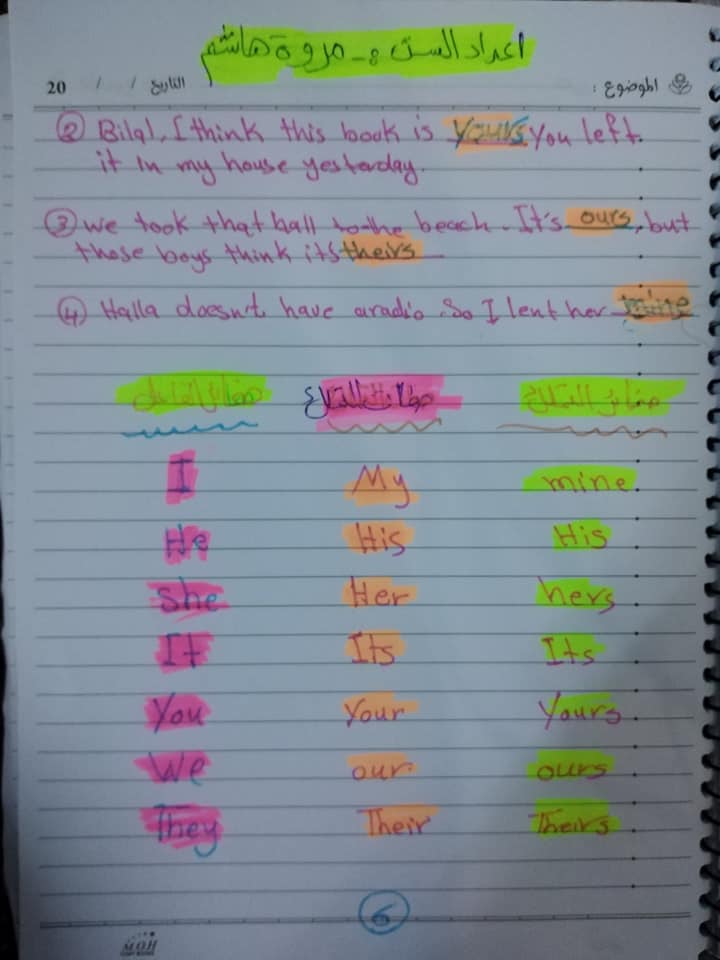 اعداد الست :- مروة هاشم
الموضوع : التاريخ / / 20
② Bilal, I think this book is yours you left
it in my house yesterday.
③ we took that ball to the beach. It's ours, but
those boys think its theirs
④ Halla doesn't have aradio. So I lent her mine
I My mine
He His His
she Her hers
It Its Its
You Your Yours
We our ours
They Their Theirs
6
MOH